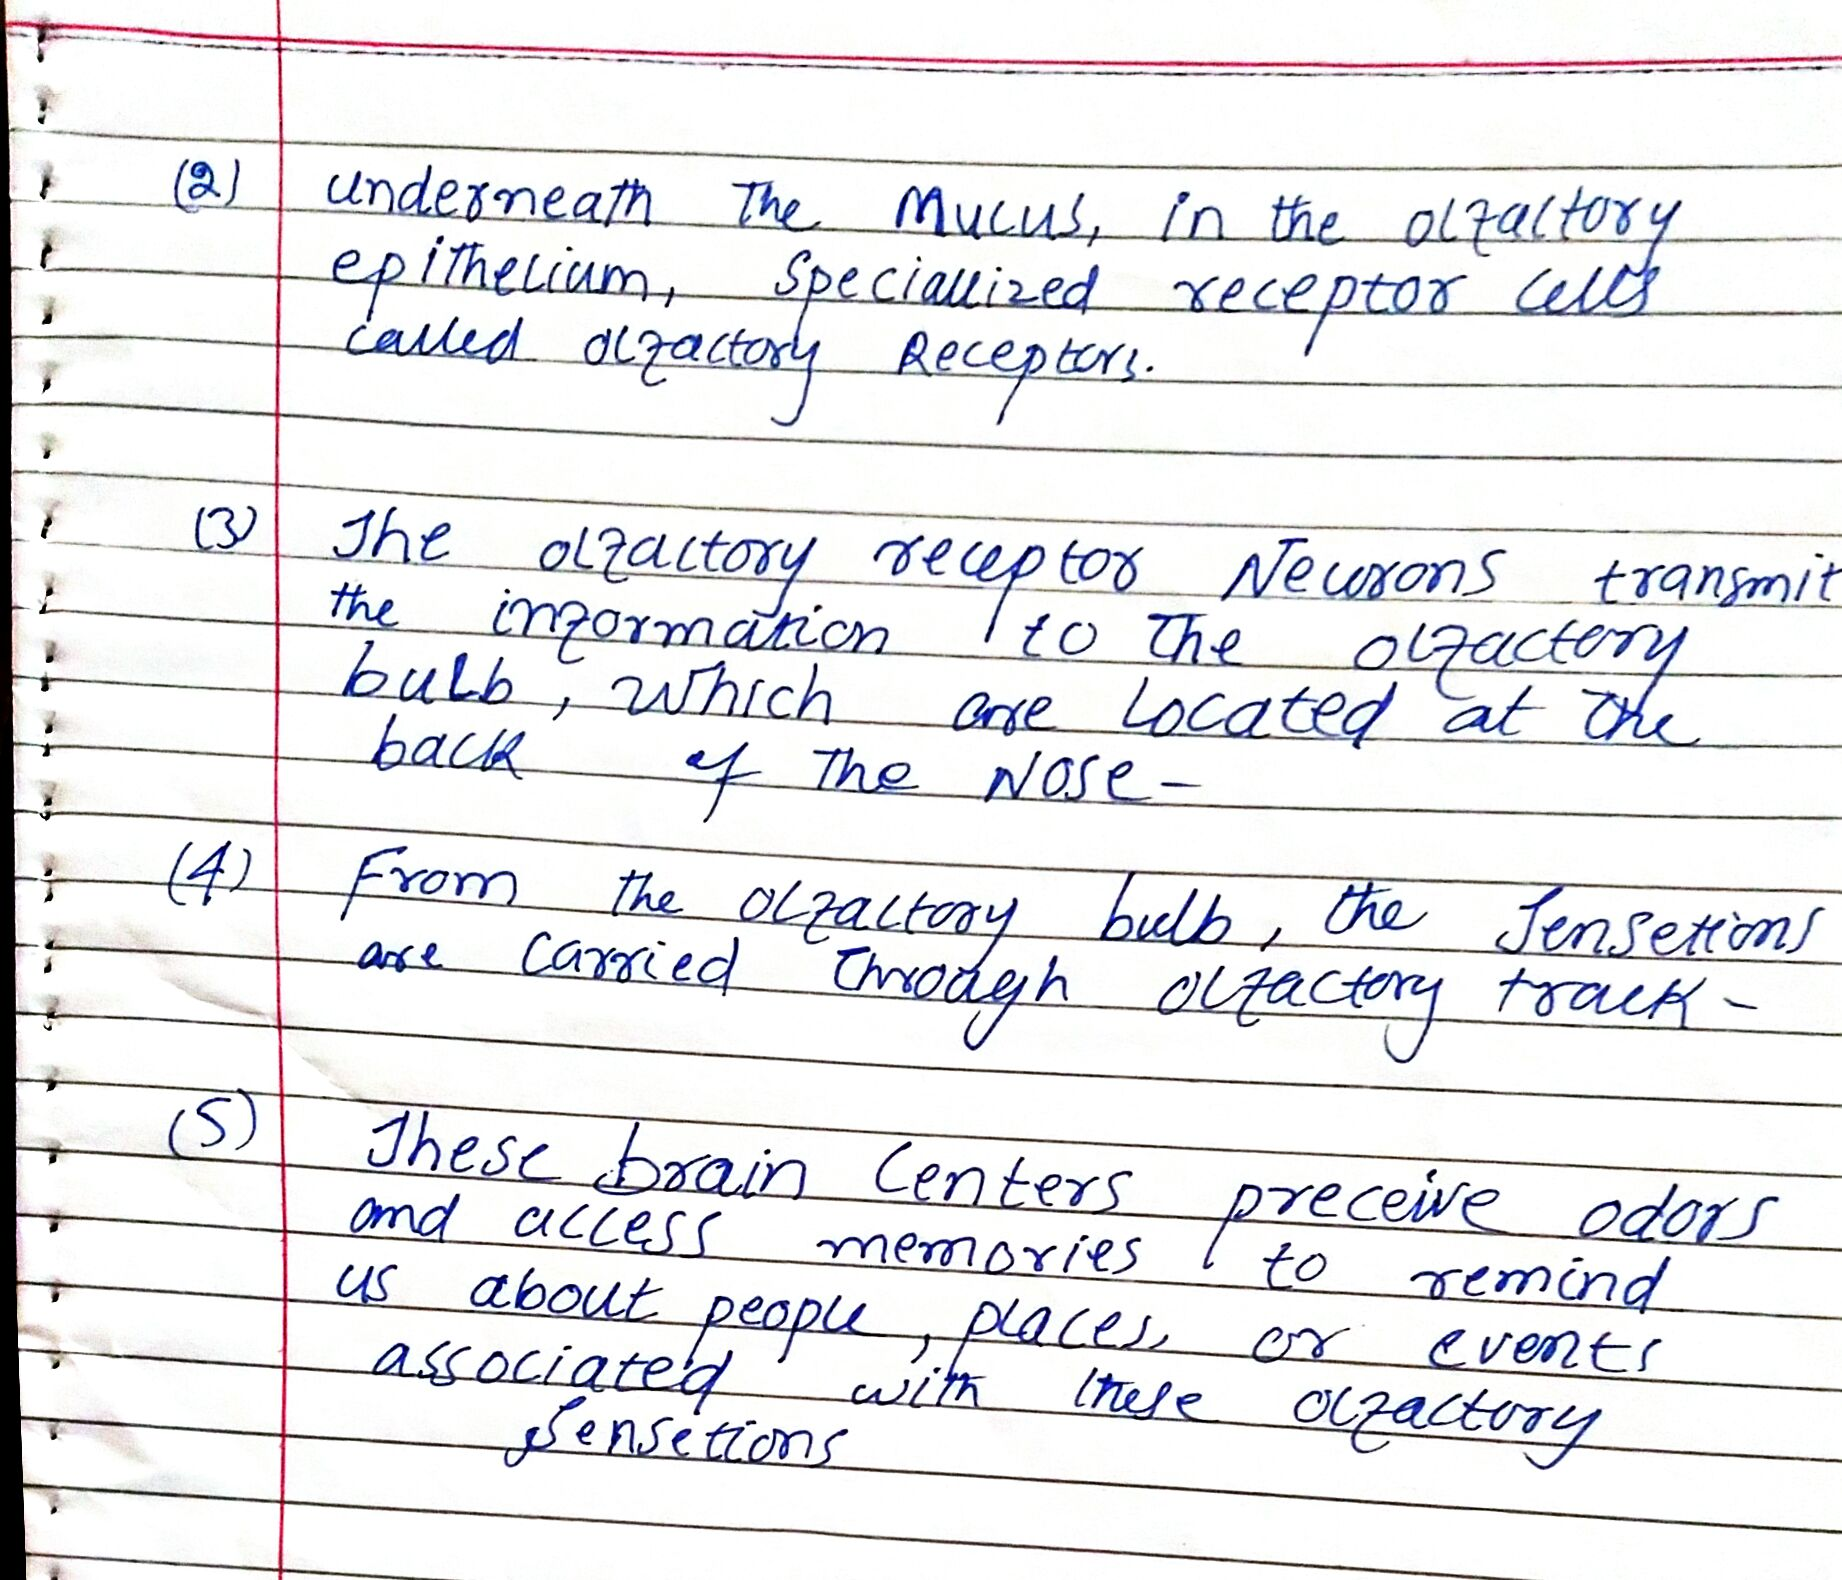 (2) underneath The Mucus, in the olfactory
epithelium, Speciallized receptor cells
called olfactory Receptors.
(3) The olfactory receptor Neurons transmit
the information to The olfactory
bulb, which are Located at the
back of The Nose-
(4) From the olfactory bulb, the Sensetions
are carried through olfactory track-
(5) These brain Centers preceive odors
and access memories to remind
us about people, places, or events
associated with these olfactory
Sensetions